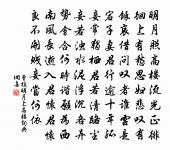 明月照高樓流光正徘
徊上有愁思婦悲歎有
餘哀借問歎者誰言是
宕子妻君行踰十年孤
妾常獨棲君若清路塵
妾若濁水泥浮沉各異
勢會合何時諧願為西
南風長逝入君懷君懷
良不開賤妾當何依
曹植明月上高樓詞典
網集